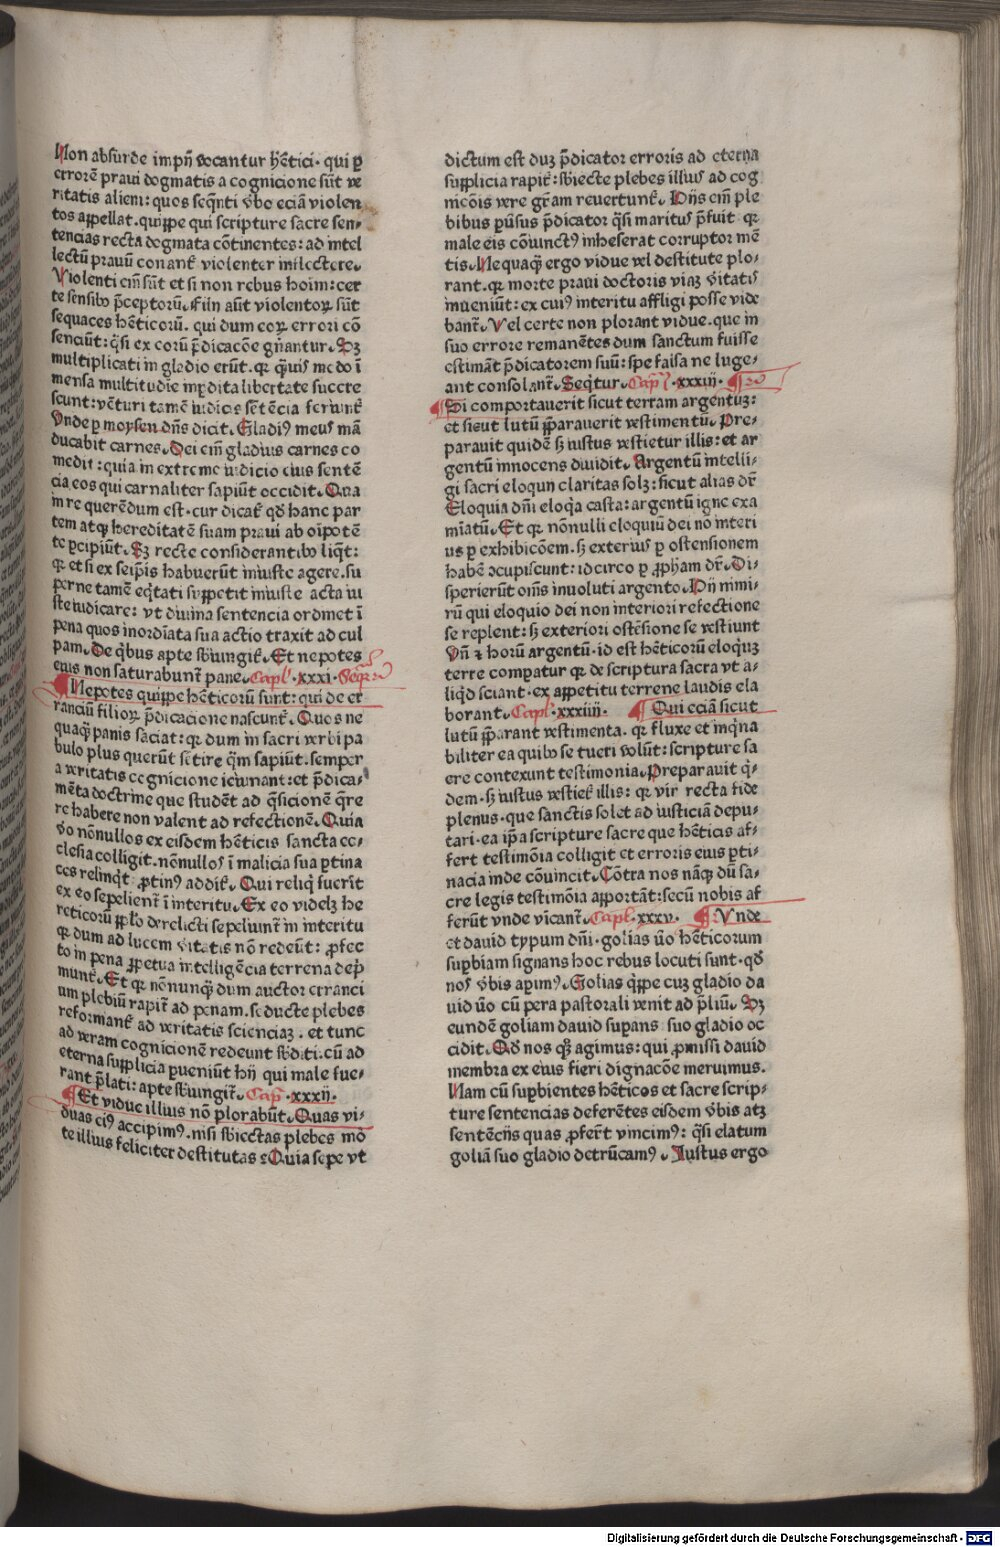 Non absurde impij vocantur hẽtici· qui ꝑ
errorẽ praui dogmatis a cognicione sũt ve
ritatis alieni: quos seq̃nti v̾bo eciã violen
tos appellat. quippe qui scripture sacre sen⸗
tencias recta dogmata cõtinentes: ad intel
lectũ prauũ conant᷑ violenter inflectere.
Violenti em̃ sũt et si non rebus hoim: cer
te sensibꝯ p̃ceptorũ. filij aũt violentoꝝ sũt
sequaces hẽticorũ. qui dum eoꝝ errori cõ
senciũt: q̃si ex eorũ p̃dicacõe gñantur. Sꝫ
multiplicati in gladio erũt. qꝛ q̃uis modo ĩ
mensa multitudie inpedita libertate succre
scunt: vẽturi tamẽ iudicis sẽtẽcia feriunt᷑
Vnde ꝑ moysen dñs dicit. Gladiꝰ meus mã
ducabit carnes. Dei em̃ gladius carnes co
medit: quia in extremo iudicio eius sentẽ
cia eos qui carnaliter sapiũt occidit. Qua
in re querẽdum est· cur dicat᷑ qđ hanc par
tem atqꝫ hereditatẽ suam praui ab oĩpotẽ
te ꝑcipiũt. Sꝫ recte considerantibꝯ liq̃t:
qꝛ et si ex seip̃is habuerũt iniuste agere. su
perne tamẽ eq̃tati suppetit iniuste acta iu
ste iudicare: vt diuina sentencia ordinet ĩ
pena quos inordĩata sua actio traxit ad cul
pam. De q̃bus apte sb̾iungit᷑. Et nepotes
eius non saturabunt᷑ pane. Capl̃ ·xxxi· Seq̃r
Nepotes quippe hẽticorũ sunt: qui de er
ranciũ filioꝝ p̃dicacione nascunt᷑. Quos ne
quaq̃ panis saciat: qꝛ dum in sacri verbi pa
bulo plus querũt sẽtire q̃m sapiũt. semper
a veritatis cognicione ieiunant: et p̃dica⸗
mẽta doctrine que studẽt ad q̃sicionẽ q̃re
re habere non valent ad refectionẽ. Quia
v̾o nõnullos ex eisdem hẽticis sancta ec⸗
clesia colligit. nõnullos ĩ malicia sua ꝑtina
ces relinq̃t ꝓtinꝰ addit᷑. Qui reliq̃ fuerĩt
ex eo sepelient᷑ ĩ interitu. Ex eo videlꝫ he
reticorũ pp̃lo derelicti sepeliunt᷑ in interitu
qꝛ dum ad lucem v̾itatis nõ redeũt: ꝓfec
to in pena ꝑpetua intelligẽcia terrena dep̃
munt᷑. Et qꝛ nõnunq̃ dum auctor erranci
um plebiũ rapit᷑ ad penam. seducte plebes
reformant᷑ ad veritatis scienciaꝫ. et tunc
ad veram cognicionẽ redeunt sb̾diti. cũ ad
eterna supplicia ꝑueniũt hij qui male fue⸗
rant p̃lati: apte sb̾iungit᷑. Capl̃ ·xxxij·
Et vidue illius nõ plorabũt. Quas vi⸗
duas eiꝰ accipimꝰ. nisi sb̾iectas plebes mõ
te illius feliciter destitutas? Quia sepe vt
dictum est duꝫ p̃dicator erroris ad eterna
supplicia rapit᷑: sb̾iecte plebes illius ad cog
nicõis vere gr̃am reuertunt᷑. Hijs em̃ ple
bibus ꝑũsus p̃dicator q̃si maritus p̃fuit qꝛ
male eis cõiunctꝰ inheserat corruptor mẽ
tis. Nequaq̃ ergo vidue vel destitute plo⸗
rant. qꝛ morte praui doctoris viaꝫ v̾itatis
inueniũt: ex cuiꝰ interitu affligi posse vide
bant᷑. Vel certe non plorant vidue. que in
suo errore remanẽtes dum sanctum fuisse
estimãt p̃dicatorem suũ: spe falsa ne luge⸗
ant consolant᷑. Seq̃tur. Capl̃ ·xxxiij·
Si comportauerit sicut terram argentuꝫ:
et sicut lutũ p̃parauerit vestimentũ. Pre⸗
parauit quidẽ sꝫ iustus vestietur illis: et ar
gentũ innocens diuidit. Argentũ intelli⸗
gi sacri eloquij claritas solꝫ: sicut alias dr̃
Eloquia dñi eloq̃a casta: argentũ igne exa
miatũ. Et qꝛ nõnulli eloquiũ dei nõ interi
us ꝑ exhibicõem. sꝫ exterius ꝑ ostensionem
habẽ ꝯcupiscunt: idcirco ꝑ ꝓph̾am dr̃. Di⸗
sperierũt om̃s inuoluti argento. Hij nimi⸗
rũ qui eloquio dei non interiori refectione
se replent: sꝫ exteriori ostẽsione se vestiunt
Vñ ⁊ horũ argentũ· id est hẽticorũ eloq̃uꝫ
terre comparatur qꝛ de scriptura sacra vt a⸗
liq̃d sciant· ex appetitu terrene laudis ela
borant. Capl̃ ·xxxiiij· Qui eciã sicut
lutũ p̃parant vestimenta. qꝛ fluxe et inq̃na
biliter ea quibꝯ se tueri volũt: scripture sa
cre contexunt testimonia. Preparauit q̃⸗
dem· sꝫ iustus vestiet᷑ illis: qꝛ vir recta fide
plenus· que sanctis solet ad iusticiã depu⸗
tari· ea ip̃a scripture sacre que hẽticis af⸗
fert testimõia colligit et erroris eius ꝑti⸗
nacia inde cõuincit. Cõtra nos nãqꝫ dũ sa⸗
cre legis testimõia apportãt: secũ nobis af
ferũt vnde vicant᷑. Capl̃ ·xxxv· Vnde
et dauid typum dñi· golias ũo hẽticorum
supbiam signans hoc rebus locuti sunt· qđ
nos v̾bis apimꝰ. Golias q̃ppe cuꝫ gladio da
uid ũo cũ pera pastorali venit ad p̃liũ. Sꝫ
eundẽ goliam dauid supans suo gladio oc
cidit. Qđ nos qꝫ agimus: qui ꝓmissi dauid
membra ex eius fieri dignacõe meruimus.
Nam cũ supbientes hẽticos et sacre scrip⸗
ture sentencias deferẽtes eisdem v̾bis atꝫ
sentẽcijs quas ꝓfer̃t vincimꝰ: q̃si elatum
goliã suo gladio detrũcamꝰ. Iustus ergo
Digitalisierung gefördert durch die Deutsche Forschungsgemeinschaft - DFG